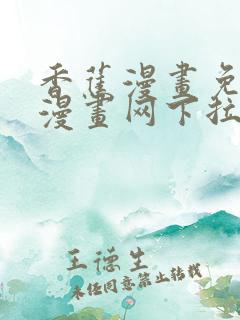 香蕉漫畫免
漫畫网下拉
王德生
未经同意禁止转载